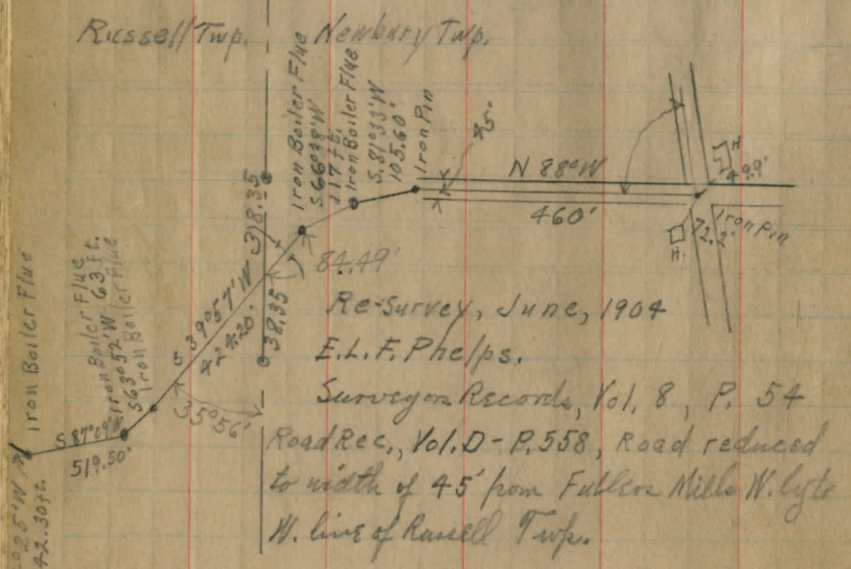 Russell Twp. Newbury Twp.
Iron Boiler Flue
S66°38'W
117 ft.
Iron Boiler Flue
S.81°33'W
105.60'
Iron Pin
45'
N 88° W
460'
H
49.9'
Iron Pin
72.2'
H.
318.35
38.35
84.49'
S 39°57' W
424.20'
35°56'
Iron Boiler Flue
S63°52'W 63 ft.
Iron Boiler Flue
S 87°09' W
519.50'
Iron Boiler Flue
25' W
42.30 ft.
Re-Survey, June, 1904
E.L.F. Phelps.
Surveyors Records, Vol. 8, P. 54
Road Rec., Vol. D - P. 558, Road reduced
to width of 45' from Fullers Mills W.ly to
W. line of Russell Twp.